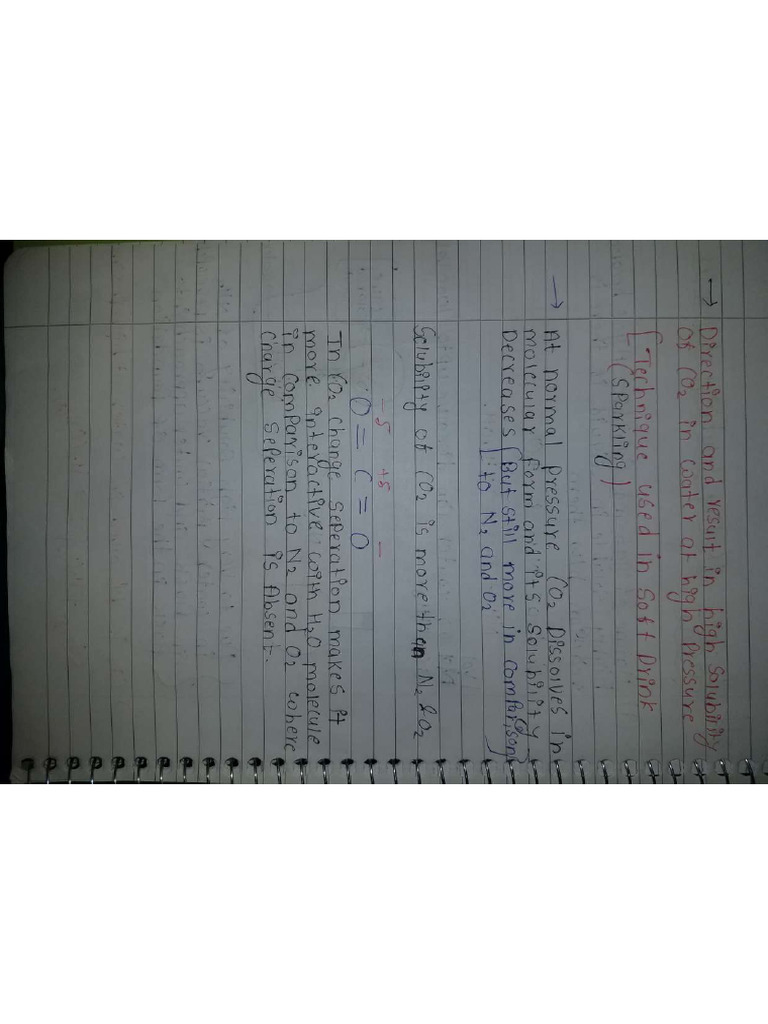 → Direction and result in high solubility
of CO₂ in water at high pressure
[Technique used in Soft Drink
(Sparkling)
→ At normal pressure CO₂ Dissolves in
molecular form and its solubility
Decreases [But still more in comparison
to N₂ and O₂
Solubility of CO₂ is more then N₂ & O₂
-δ +δ -
O = C = O
In CO₂ charge seperation makes it
more interactive with H₂O molecule
in comparison to N₂ and O₂ where
charge seperation is Absent.